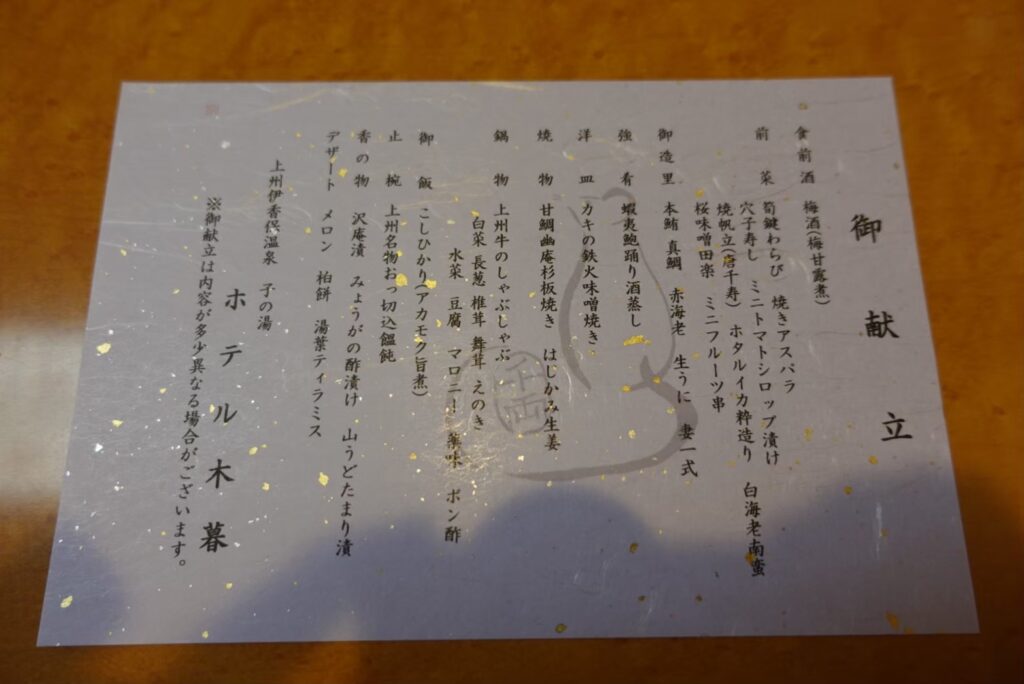 御献立
食前酒 梅酒(梅甘露煮)
前菜 筍鍵わらび 焼きアスパラ
穴子寿し ミニトマトシロップ漬け
焼帆立(唐千寿) ホタルイカ粋造り 白海老南蛮
桜味噌田楽 ミニフルーツ串
御造里 本鮪 真鯛 赤海老 生うに 妻一式
強肴 蝦夷鮑踊り酒蒸し
洋皿 カキの鉄火味噌焼き
焼物 甘鯛幽庵杉板焼き はじかみ生姜
鍋物 上州牛のしゃぶしゃぶ
白菜 長葱 椎茸 舞茸 えのき
水菜 豆腐 マロニー 薬味 ポン酢
御飯 こしひかり(アカモク旨煮)
止椀 上州名物おっ切込饂飩
香の物 沢庵漬 みょうがの酢漬け 山うどたまり漬
デザート メロン 柏餅 湯葉ティラミス
上州伊香保温泉 子の湯
ホテル木暮
※御献立は内容が多少異なる場合がございます。